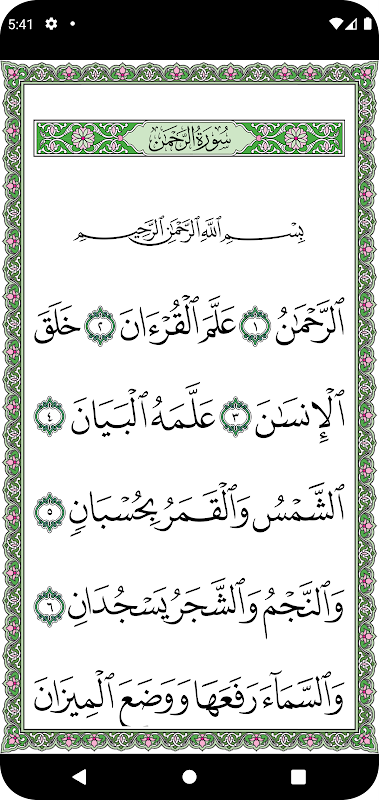 5:41
سُورَةُ الرَّحۡمَٰن
بِسۡمِ ٱللَّهِ ٱلرَّحۡمَٰنِ ٱلرَّحِيمِ
ٱلرَّحۡمَٰنُ ١ عَلَّمَ ٱلۡقُرۡءَانَ ٢ خَلَقَ
ٱلۡإِنسَٰنَ ٣ عَلَّمَهُ ٱلۡبَيَانَ ٤
ٱلشَّمۡسُ وَٱلۡقَمَرُ بِحُسۡبَانٖ ٥
وَٱلنَّجۡمُ وَٱلشَّجَرُ يَسۡجُدَانِ ٦
وَٱلسَّمَآءَ رَفَعَهَا وَوَضَعَ ٱلۡمِيزَانَ